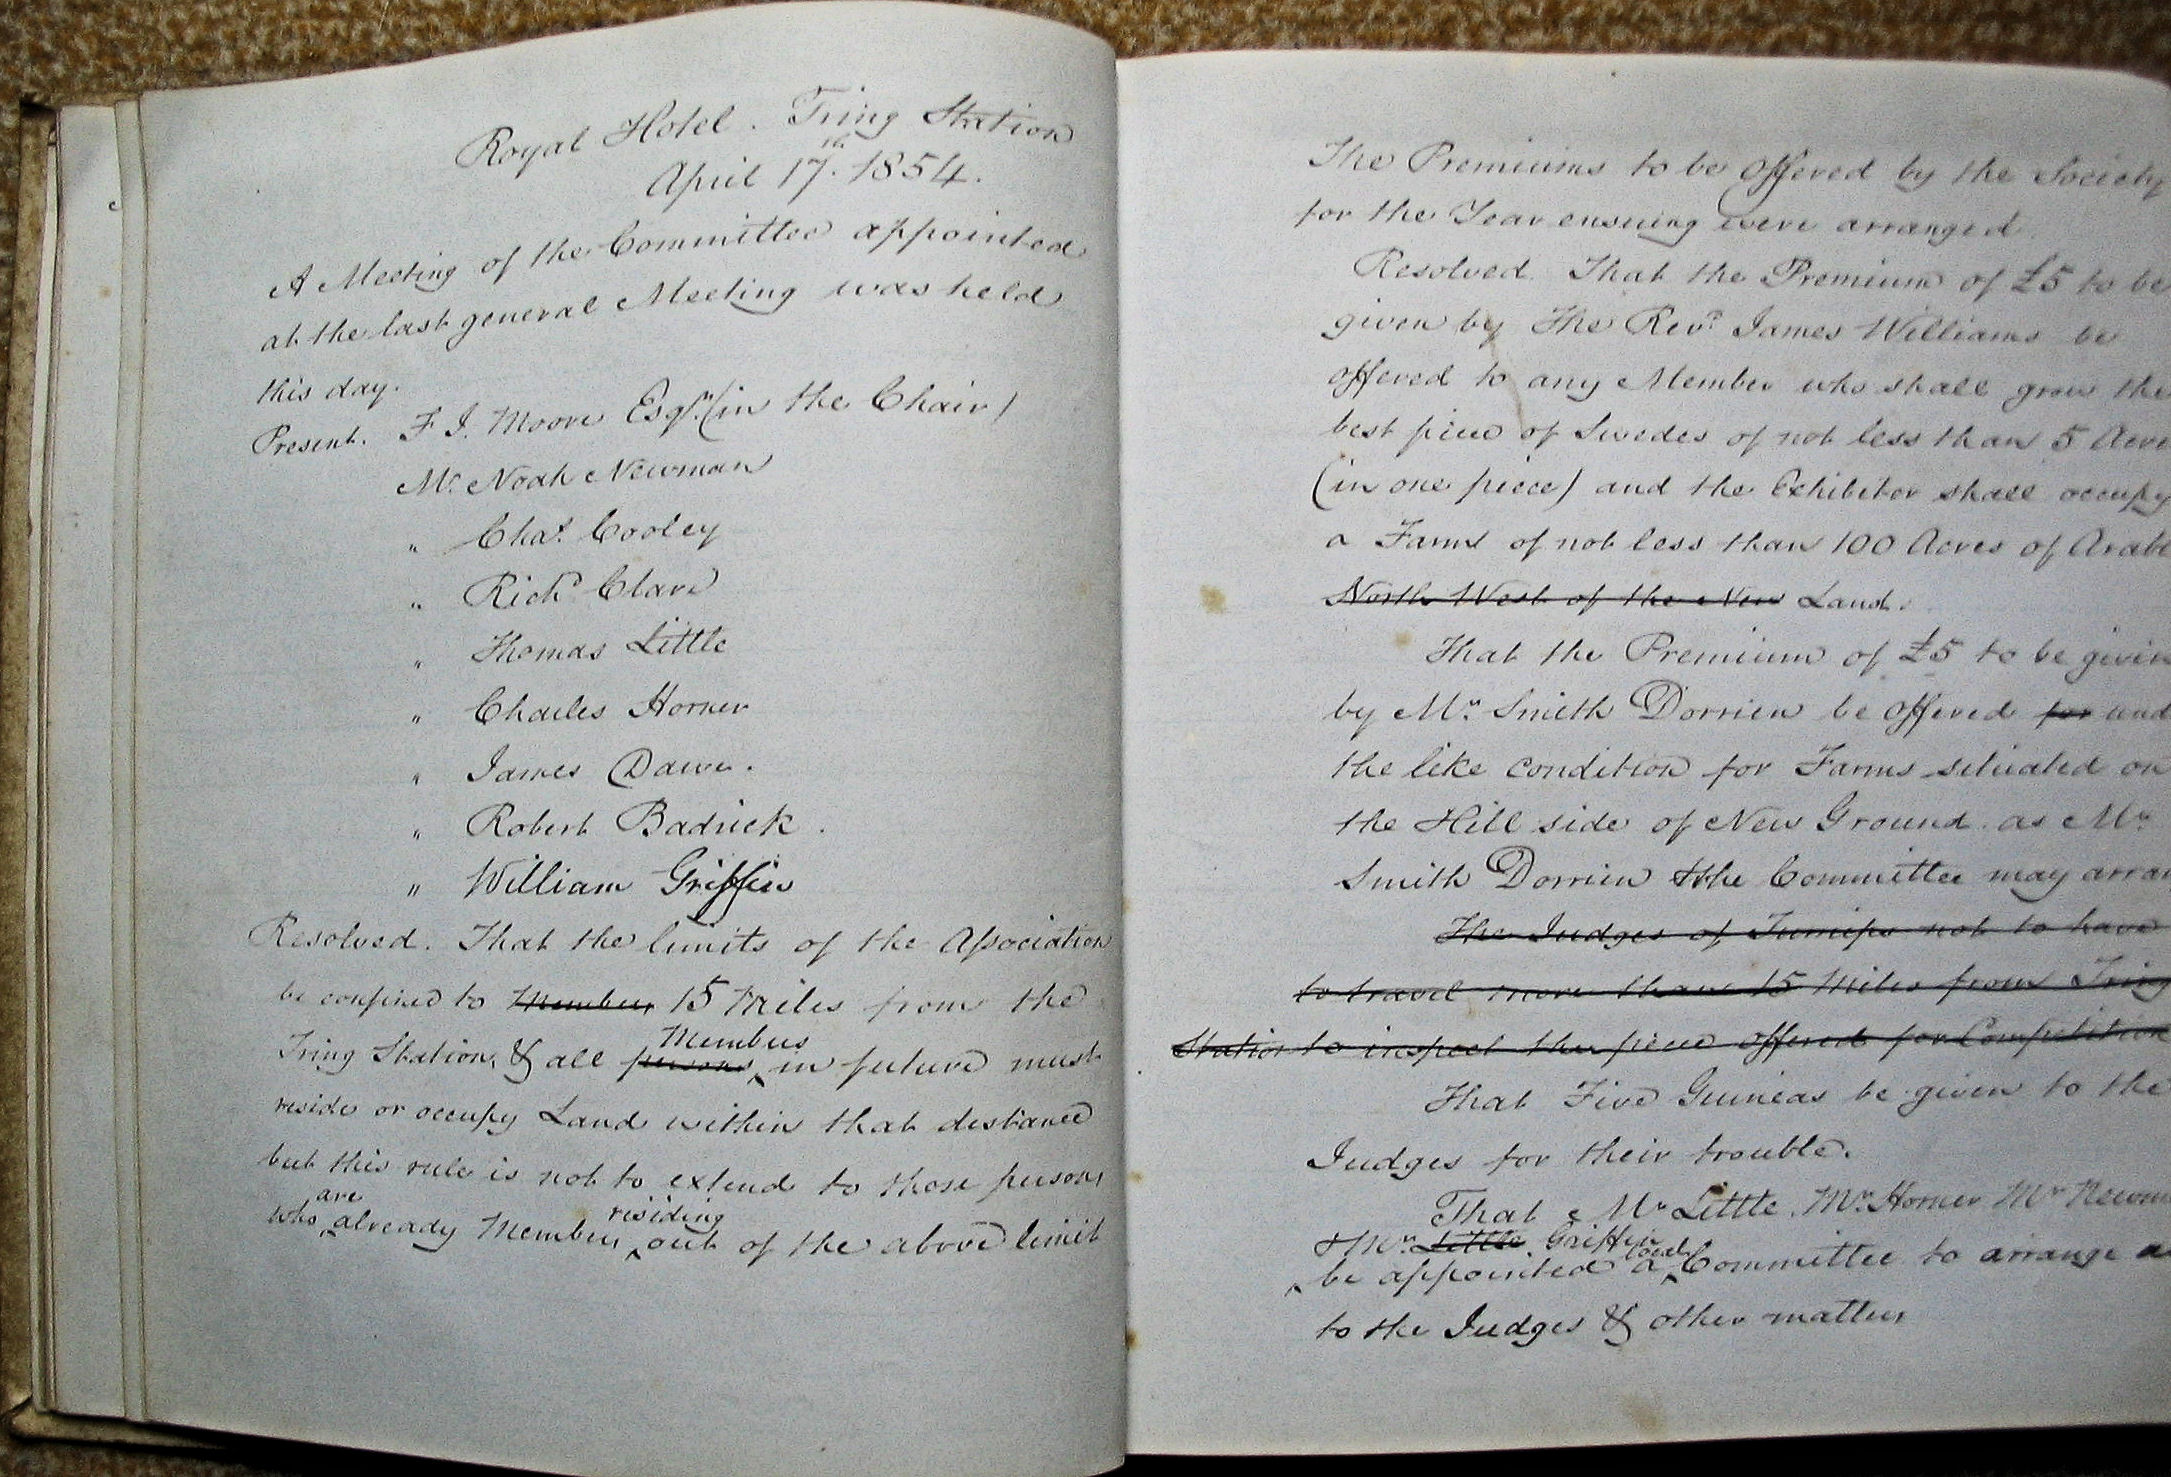 Royal Hotel. Tring Station
April 17th. 1854.
A Meeting of the Committee appointed
at the last general Meeting was held
this day.
Present. F J. Moore Esqr. (in the Chair)
Mr. Noah Newman
" Chas. Cooley
" Richd. Clare
" Thomas Little
" Charles Horner
" James Dawe.
" Robert Badrick.
" William Griffin
Resolved. That the limits of the Association
be confined to Members 15 Miles from the
Members
Tring Station, & all persons in future must
reside or occupy Land within that distance
but this rule is not to extend to those persons
are residing
who already Members out of the above limit
The Premiums to be offered by the Society
for the Year ensuing were arranged
Resolved. That the Premium of £5 to be
given by The Revd. James Williams be
offered to any Member who shall grow the
best piece of Swedes of not less than 5 Acre
(in one piece) and the Exhibitor shall occupy
a Farm of not less than 100 Acres of Arabl
North West of the New Land.
That the Premium of £5 to be given
by Mr. Smith Dorrien be offered for und
the like condition for Farms situated on
the Hill side of New Ground. as Mr
Smith Dorrien & the Committee may arran
The Judges of Turnips not to have
to travel more than 15 Miles from Tring
Station to inspect the piece offered for Competition
That Five Guineas be given to the
Judges for their trouble.
That Mr Little, Mr. Horner Mr Newm
& Mr. Little Griffin local
be appointed a Committee to arrange a
to the Judges & other matters